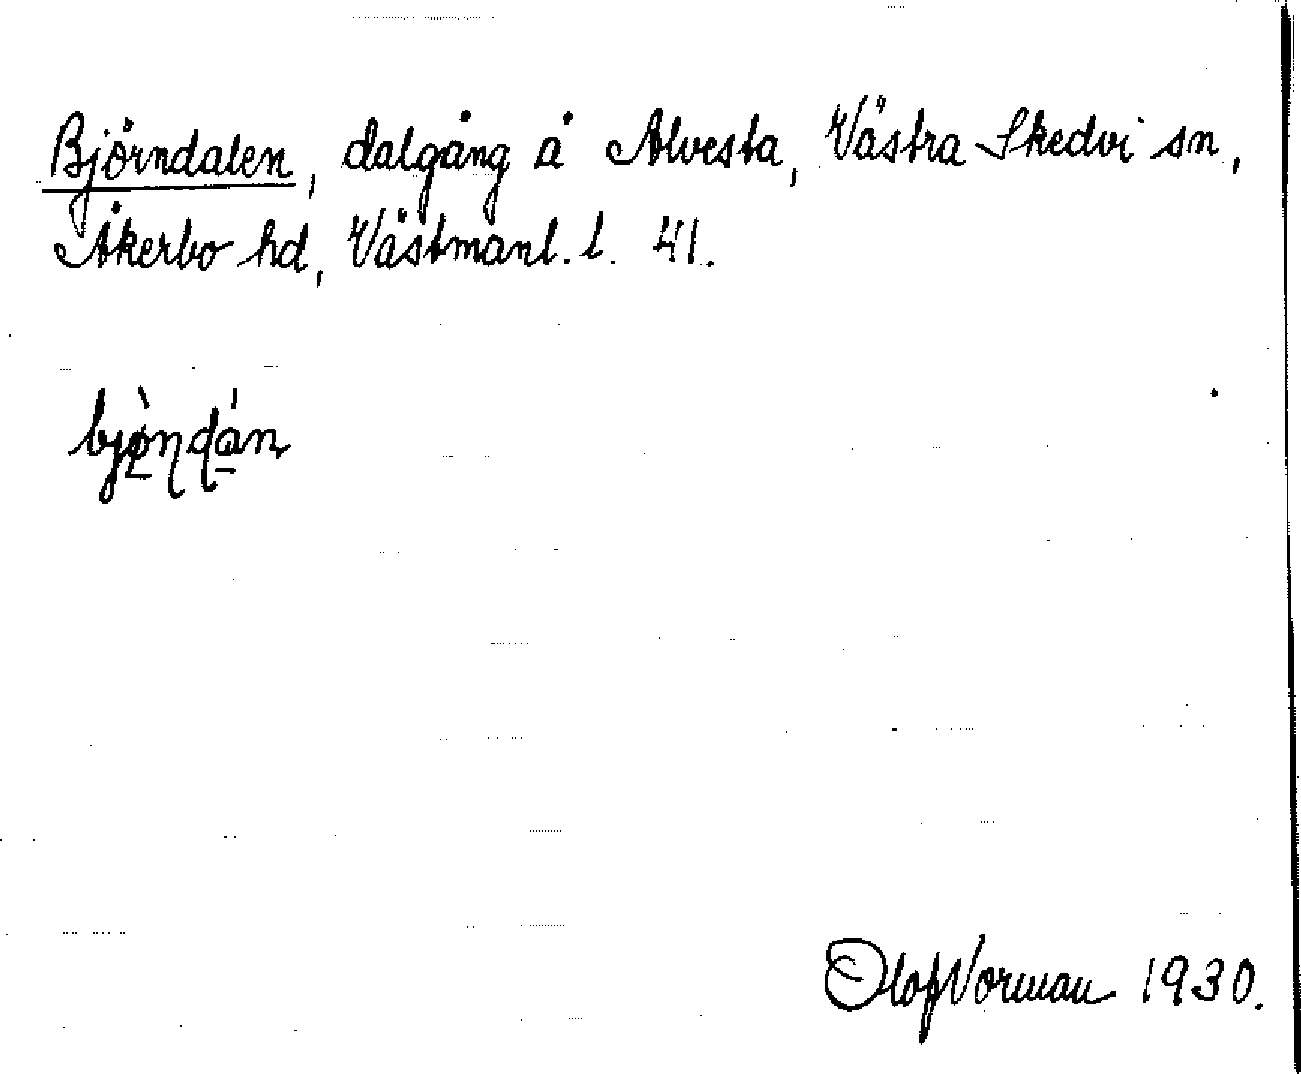 Björndalen, dalgång å Alvesta, Västra Skedvi sn,
Åkerbo hd, Västmanl. l. 41.
bjø̠̀ɳɖá̠n
Olof Vorman 1930.